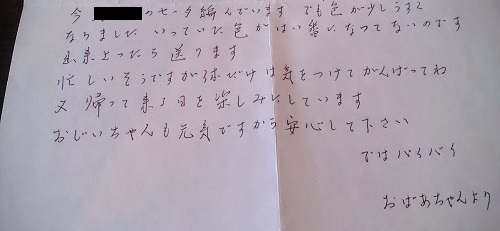 今 のセータ編んでいます でも色が少しうすく
なりました いっていた色がはい番になってないのです
出来上ったら送ります
忙しいそうですが体だけは気をつけてがんばってね
又帰って来る日を楽しみにしています
おじいちゃんも元気ですから安心して下さい
ではバイバイ
おばあちゃんより